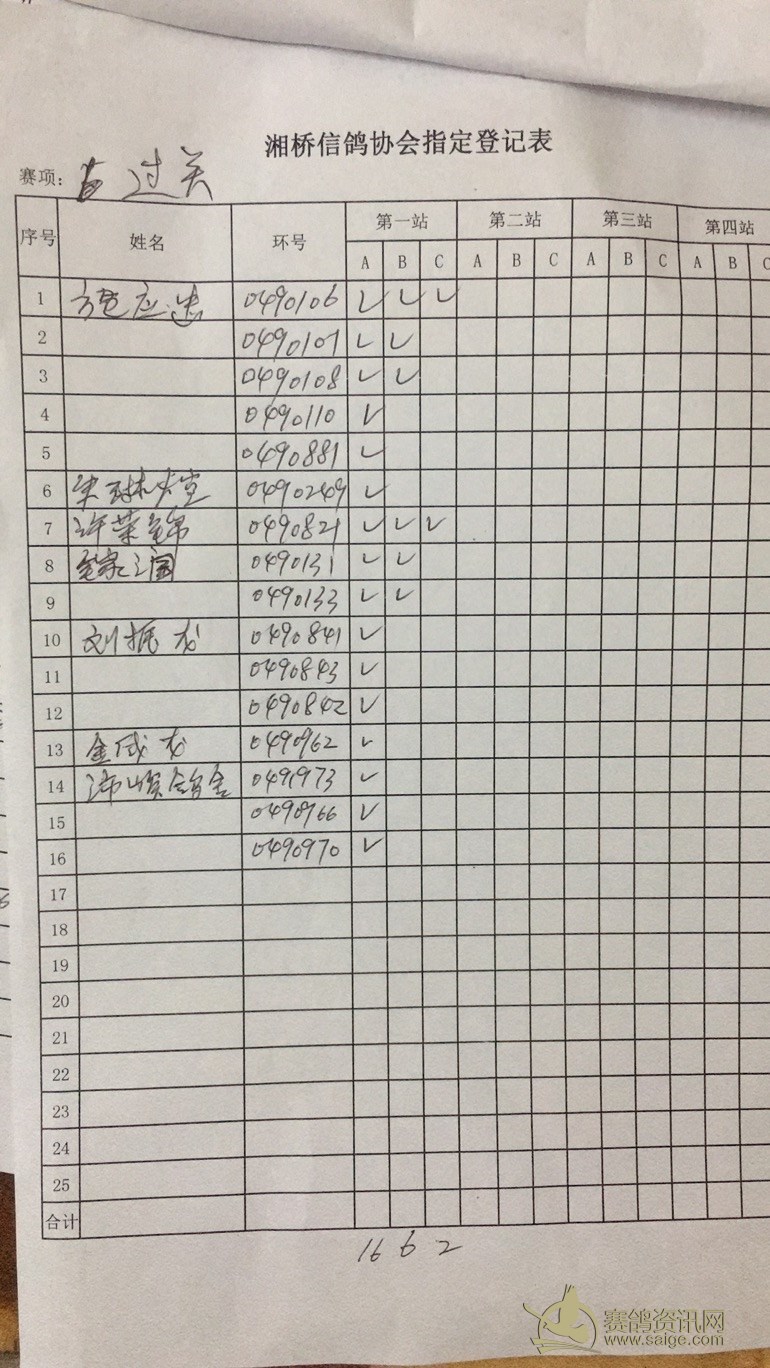 湘桥信鸽协会指定登记表
赛项: 过关
序号 姓名 环号 第一站 第二站 第三站 第四站
A B C A B C A B C A B C
1 0490106 ✓ ✓ ✓
2 0490107 ✓ ✓
3 0490108 ✓ ✓
4 0490110 ✓
5 0490881 ✓
6 0490249 ✓
7 许荣锦 0490821 ✓ ✓ ✓
8 0490131 ✓ ✓
9 0490133 ✓ ✓
10 刘振龙 0490841 ✓
11 0490843 ✓
12 0490842 ✓
13 金成龙 0490962 ✓
14 ✓
15 0490966 ✓
16 0490970 ✓
17
18
19
20
21
22
23
24
25
合计
16 6 2
赛鸽资讯网
www.saige.com